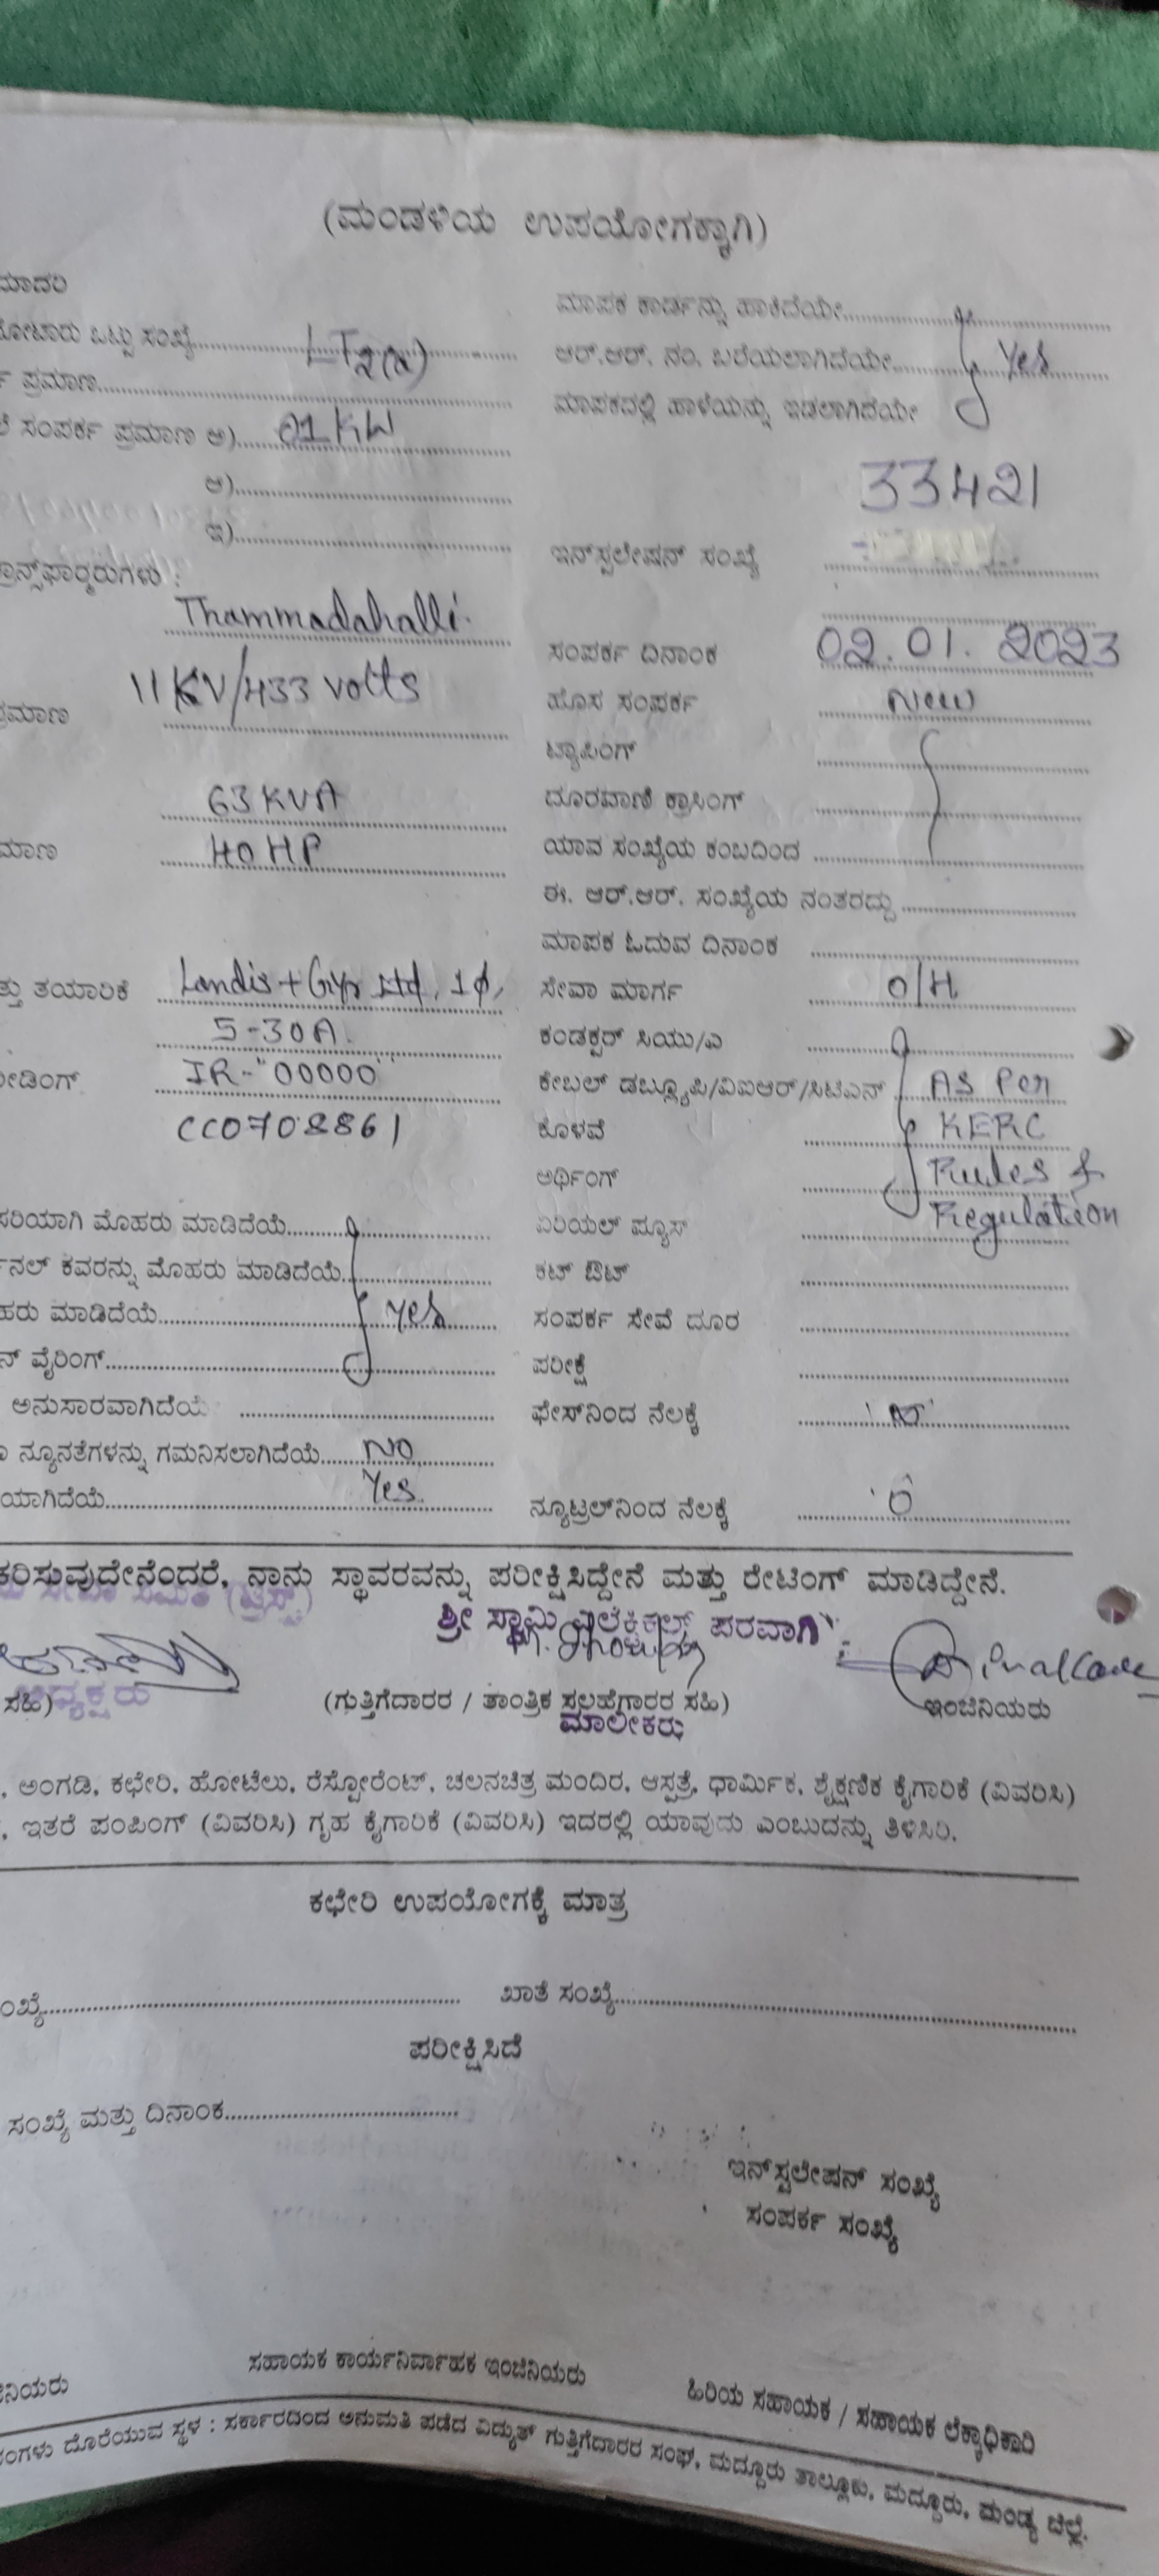 (ಮಂಡಳಿಯ ಉಪಯೋಗಕ್ಕಾಗಿ)
ಮಾದರಿ
ಮೋಟಾರು ಒಟ್ಟು ಸಂಖ್ಯೆ
LT2(a)
ಪ್ರಮಾಣ
ಸಂಪರ್ಕ ಪ್ರಮಾಣ ಅ) 01 KW
ಆ)
ಇ)
ಟ್ರಾನ್ಸ್‌ಫಾರ್ಮರುಗಳು :
Thammadahalli
11 KV/433 volts
ಪ್ರಮಾಣ
63 KVA
ಮಾಣ 40 HP
ತ್ತು ತಯಾರಿಕೆ Landis + Gyr Ltd, 1ϕ,
5-30A.
ರೀಡಿಂಗ್ IR-"00000"
CC0708861
ಸರಿಯಾಗಿ ಮೊಹರು ಮಾಡಿದೆಯೆ
ನಲ್ ಕವರನ್ನು ಮೊಹರು ಮಾಡಿದೆಯೆ
ಹರು ಮಾಡಿದೆಯೆ Yes
ನ್ ವೈರಿಂಗ್
ಅನುಸಾರವಾಗಿದೆಯೆ
ನ್ಯೂನತೆಗಳನ್ನು ಗಮನಿಸಲಾಗಿದೆಯೆ NO
ಯಾಗಿದೆಯೆ Yes
ಮಾಪಕ ಕಾರ್ಡನ್ನು ಹಾಕಿದೆಯೇ
ಆರ್.ಆರ್. ನಂ. ಬರೆಯಲಾಗಿದೆಯೇ Yes
ಮಾಪಕದಲ್ಲಿ ಹಾಳೆಯನ್ನು ಇಡಲಾಗಿದೆಯೇ
33421
ಇನ್‌ಸ್ಟಲೇಷನ್ ಸಂಖ್ಯೆ
ಸಂಪರ್ಕ ದಿನಾಂಕ 02.01.2023
ಹೊಸ ಸಂಪರ್ಕ New
ಟ್ಯಾಪಿಂಗ್
ದೂರವಾಣಿ ಕ್ರಾಸಿಂಗ್
ಯಾವ ಸಂಖ್ಯೆಯ ಕಂಬದಿಂದ
ಈ. ಆರ್.ಆರ್. ಸಂಖ್ಯೆಯ ನಂತರದ್ದು
ಮಾಪಕ ಓದುವ ದಿನಾಂಕ
ಸೇವಾ ಮಾರ್ಗ O/H
ಕಂಡಕ್ಟರ್ ಸಿಯು/ಎ
ಕೇಬಲ್ ಡಬ್ಲ್ಯೂಪಿ/ವಿಐಆರ್/ಸಿಟಿಎಸ್ As Per
ಕೊಳವೆ KERC
ಅರ್ಥಿಂಗ್ Rules &
ಏರಿಯಲ್ ಪ್ಯೂಸ್ Regulation
ಕಟ್ ಔಟ್
ಸಂಪರ್ಕ ಸೇವೆ ದೂರ
ಪರೀಕ್ಷೆ
ಫೇಸ್‌ನಿಂದ ನೆಲಕ್ಕೆ
ನ್ಯೂಟ್ರಲ್‌ನಿಂದ ನೆಲಕ್ಕೆ 'O'
ಕರಿಸುವುದೇನೆಂದರೆ, ನಾನು ಸ್ಥಾವರವನ್ನು ಪರೀಕ್ಷಿಸಿದ್ದೇನೆ ಮತ್ತು ರೇಟಿಂಗ್ ಮಾಡಿದ್ದೇನೆ.
ಸೇವಾ ಸಮಿತಿ (ಟ್ರಸ್ಟ್)
ಶ್ರೀ ಸ್ವಾಮಿ ಎಲೆಕ್ಟ್ರಿಕಲ್ಸ್ ಪರವಾಗಿ
ಸಹಿ) ಅಧ್ಯಕ್ಷರು
(ಗುತ್ತಿಗೆದಾರರ / ತಾಂತ್ರಿಕ ಸಲಹೆಗಾರರ ಸಹಿ)
ಇಂಜಿನಿಯರು
ಮಾಲೀಕರು
, ಅಂಗಡಿ, ಕಛೇರಿ, ಹೋಟೆಲು, ರೆಸ್ಟೋರೆಂಟ್, ಚಲನಚಿತ್ರ ಮಂದಿರ, ಆಸ್ಪತ್ರೆ, ಧಾರ್ಮಿಕ, ಶೈಕ್ಷಣಿಕ ಕೈಗಾರಿಕೆ (ವಿವರಿಸಿ)
, ಇತರೆ ಪಂಪಿಂಗ್ (ವಿವರಿಸಿ) ಗೃಹ ಕೈಗಾರಿಕೆ (ವಿವರಿಸಿ) ಇದರಲ್ಲಿ ಯಾವುದು ಎಂಬುದನ್ನು ತಿಳಿಸಿರಿ.
ಕಛೇರಿ ಉಪಯೋಗಕ್ಕೆ ಮಾತ್ರ
ಂಖ್ಯೆ
ಖಾತೆ ಸಂಖ್ಯೆ
ಪರೀಕ್ಷಿಸಿದೆ
ಸಂಖ್ಯೆ ಮತ್ತು ದಿನಾಂಕ
ಇನ್‌ಸ್ಟಲೇಷನ್ ಸಂಖ್ಯೆ
ಸಂಪರ್ಕ ಸಂಖ್ಯೆ
ನಿಯರು
ಸಹಾಯಕ ಕಾರ್ಯನಿರ್ವಾಹಕ ಇಂಜಿನಿಯರು
ಹಿರಿಯ ಸಹಾಯಕ / ಸಹಾಯಕ ಲೆಕ್ಕಾಧಿಕಾರಿ
ಂಗಳು ದೊರೆಯುವ ಸ್ಥಳ : ಸರ್ಕಾರದಿಂದ ಅನುಮತಿ ಪಡೆದ ವಿದ್ಯುತ್ ಗುತ್ತಿಗೆದಾರರ ಸಂಘ, ಮದ್ದೂರು ತಾಲ್ಲೂಕು, ಮದ್ದೂರು, ಮಂಡ್ಯ ಜಿಲ್ಲೆ.